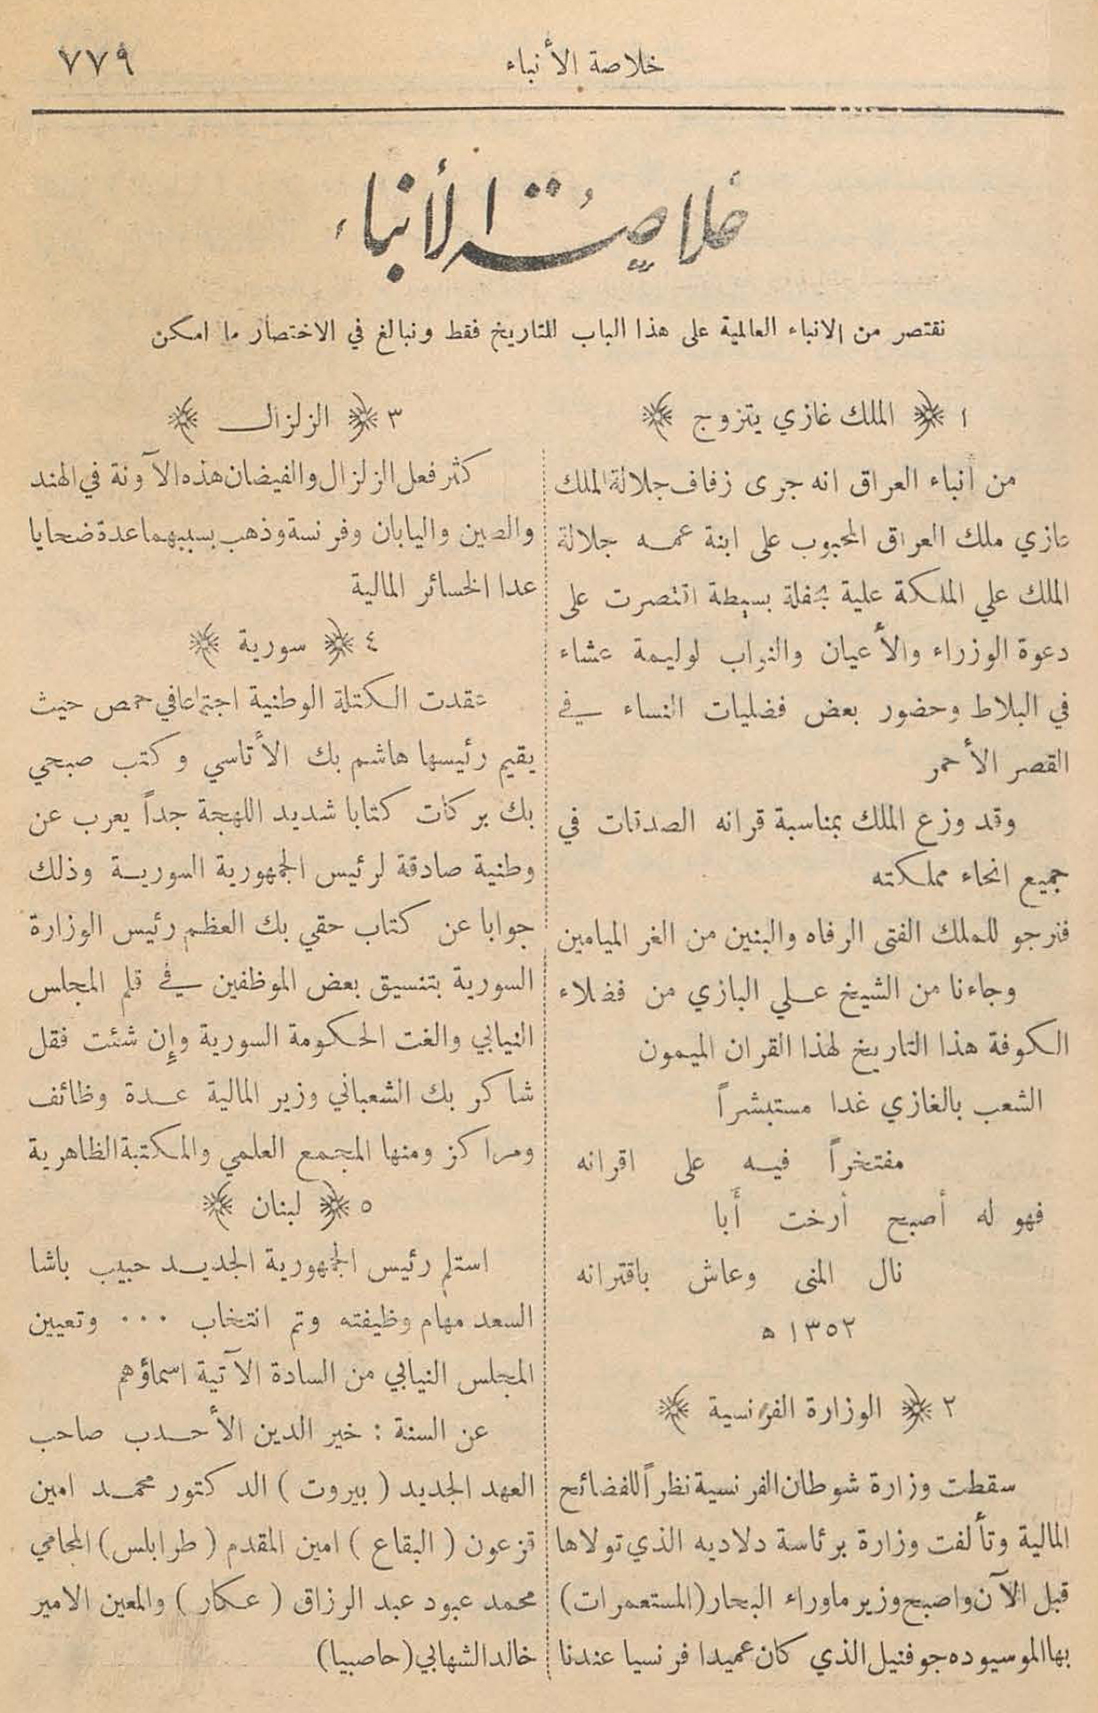 خلاصة الأنباء ٧٧٩
خلاصة الأنباء
نقتصر من الانباء العالمية على هذا الباب للتاريخ فقط ونبالغ في الاختصار ما امكن
١ ﴿ الملك غازي يتزوج ﴾
من أنباء العراق انه جرى زفاف جلالة الملك
غازي ملك العراق المحبوب على ابنة عمه جلالة
الملك علي الملكة علية بحفلة بسيطة اقتصرت على
دعوة الوزراء والأعيان والنواب لوليمة عشاء
في البلاط وحضور بعض فضليات النساء في
القصر الأحمر
وقد وزع الملك بمناسبة قرانه الصدقات في
جميع انحاء مملكته
فنرجو للملك الفتى الرفاه والبنين من الغر الميامين
وجاءنا من الشيخ علي البازي من فضلاء
الكوفة هذا التاريخ لهذا القران الميمون
الشعب بالغازي غدا مستبشراً
مفتخراً فيه على اقرانه
فهو له أصبح أرخت أبا
نال المنى وعاش باقترانه
١٣٥٢ ه
٢ ﴿ الوزارة الفرنسية ﴾
سقطت وزارة شوطان الفرنسية نظراً للفضائح
المالية وتألفت وزارة برئاسة دلاديه الذي تولاها
قبل الآن واصبح وزير ماوراء البحار (المستعمرات)
بها الموسيو ده جوفنيل الذي كان عميدا فرنسيا عندنا
٣ ﴿ الزلزال ﴾
كثر فعل الزلزال والفيضان هذه الآونة في الهند
والصين واليابان وفرنسة وذهب بسببهما عدة ضحايا
عدا الخسائر المالية
٤ ﴿ سورية ﴾
عقدت الكتلة الوطنية اجتماعا في حمص حيث
يقيم رئيسها هاشم بك الأتاسي وكتب صبحي
بك بركات كتابا شديد اللهجة جداً يعرب عن
وطنية صادقة لرئيس الجمهورية السورية وذلك
جوابا عن كتاب حقي بك العظم رئيس الوزارة
السورية بتنسيق بعض الموظفين في قلم المجلس
النيابي والغت الحكومة السورية وإن شئت فقل
شاكر بك الشعباني وزير المالية عدة وظائف
ومراكز ومنها المجمع العلمي والمكتبة الظاهرية
٥ ﴿ لبنان ﴾
استلم رئيس الجمهورية الجديد حبيب باشا
السعد مهام وظيفته وتم انتخاب ٠٠٠ وتعيين
المجلس النيابي من السادة الآتية اسماؤهم
عن السنة : خير الدين الأحدب صاحب
العهد الجديد ( بيروت ) الدكتور محمد امين
قزعون ( البقاع ) امين المقدم ( طرابلس ) المحامي
محمد عبود عبد الرزاق ( عكار ) والمعين الامير
خالد الشهابي ( حاصبيا )